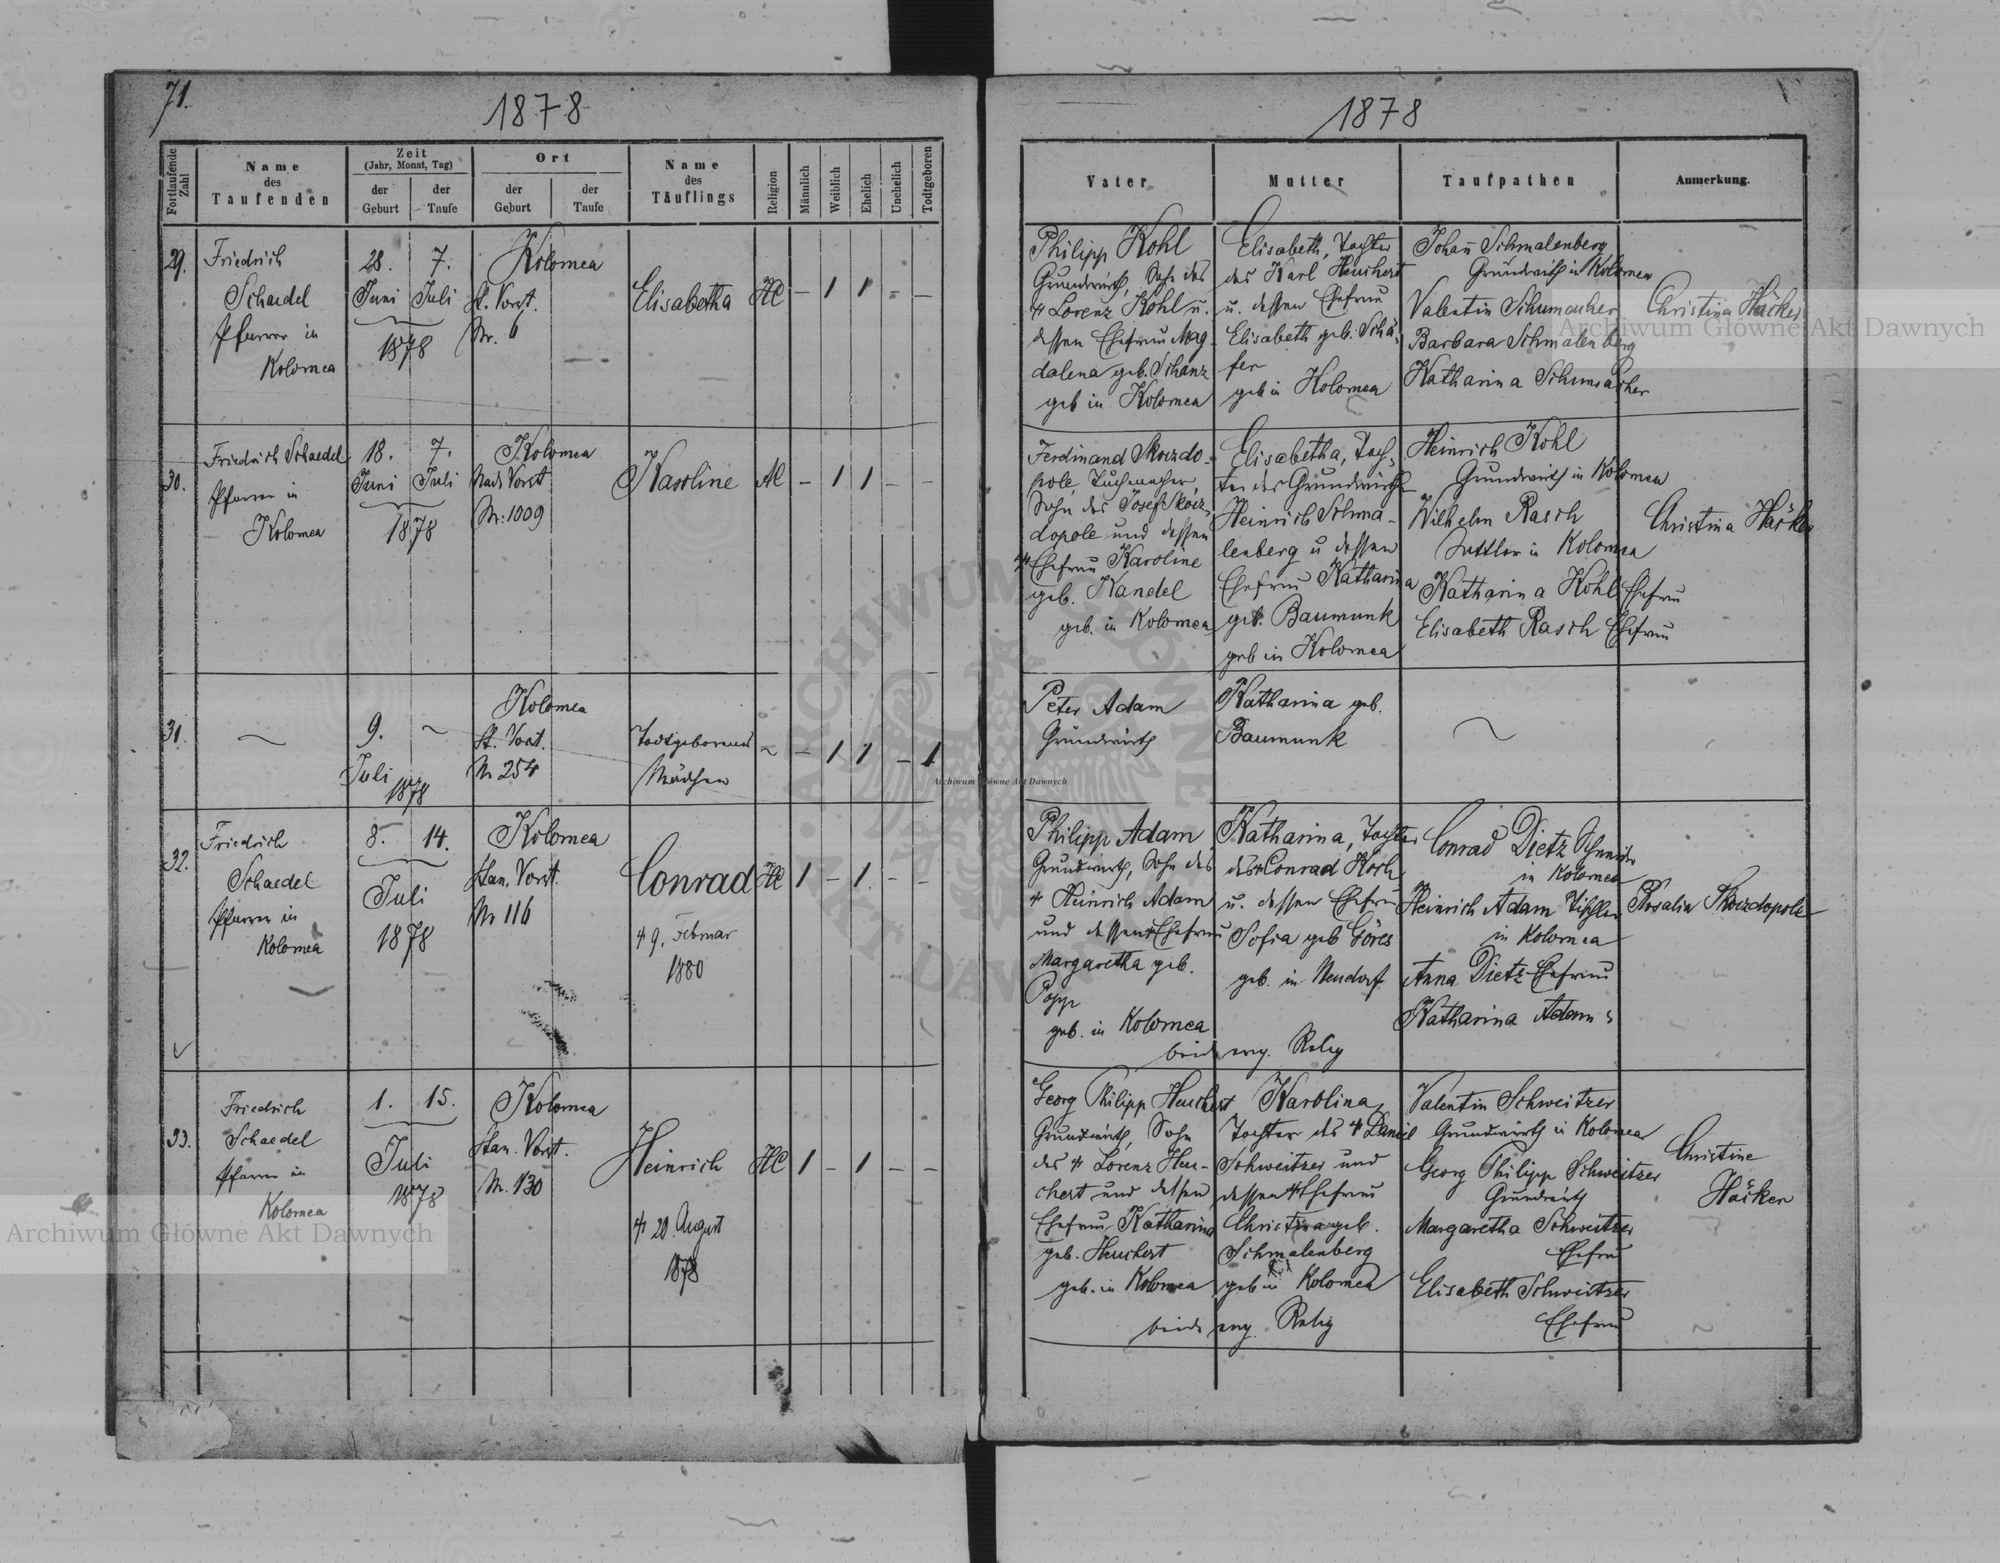 71.
1878
Fortlaufende Zahl
Name
des
Taufenden
Zeit
(Jahr, Monat, Tag)
der
Geburt
der
Taufe
Ort
der
Geburt
der
Taufe
Name
des
Täuflings
Religion
Männlich
Weiblich
Ehelich
Unehelich
Todtgeboren
29.
Friedrich
Schaedel
Pfarrer in
Kolomea
28.
Juni
7.
Juli
1878
Kolomea
St. Vorst.
Nr. 6
Elisabetha
HC
– 1 1 – –
30.
Friedrich Schaedel
Pfarrer in
Kolomea
18.
Juni
7.
Juli
1878
Kolomea
Nad. Vorst
Nr: 1009
Karoline
AC
– 1 1 – –
31.
~
9.
~
Juli
1878
Kolomea
St. Vorst.
Nr 254
Todtgeborenes
Mädchen
~ – 1 1 – 1
32.
Friedrich
Schaedel
Pfarrer in
Kolomea
8. 14.
Juli
1878
Kolomea
Stan. Vorst.
Nr 116
Conrad
HC
1 – 1 – –
9. Februar
1880
33.
Friedrich
Schaedel
Pfarrer in
Kolomea
1. 15.
Juli
1878
Kolomea
Stan. Vorst.
Nr. 130
Heinrich
HC
1 – 1 – –
20. August
1878
1878
Vater
Mutter
Taufpathen
Anmerkung.
Philipp Kohl
Grundwirth, Sohn des
Lorenz Kohl u.
dessen Ehefrau Mag-
dalena geb. Schanz
geb in Kolomea
Elisabeth, Tochter
des Karl Heuchert
u. dessen Ehefrau
Elisabeth geb. Schä-
fer
geb in Kolomea
Johañ Schmalenberg
Grundwirth in Kolomea
Valentin Schumacher
Barbara Schmalenberg
Katharina Schumacher
Christina Häcker
Ferdinand Skoizdo-
pole, Tuchmacher,
Sohn des Josef Skoiz-
dopole und dessen
Ehefrau Karoline
geb. Kandel
geb. in Kolomea
Elisabetha, Toch-
ter des Grundwirth
Heinrich Schma-
lenberg u dessen
Ehefrau Katharina
geb. Baumunk
geb in Kolomea
Heinrich Kohl
Grundwirth in Kolomea
Wilhelm Rasch
Sattler in Kolomea
Katharina Kohl Ehefrau
Elisabeth Rasch Ehefrau
Christina Häcker
Peter Adam
Grundwirth
Katharina geb.
Baumunk
~
Philipp Adam
Grundwirth, Sohn des
Heinrich Adam
und dessen Ehefrau
Margaretha geb.
Popp
geb. in Kolomea
Katharina, Tochter
des Conrad Koch
u. dessen Ehefrau
Sofia geb Göres
geb. in Neudorf
beide evg. Relig
Conrad Dietz
in Kolomea
Heinrich Adam Tischler
in Kolomea
Anna Dietz Ehefrau
Katharina Adam
Rosalia Skoizdopole
Georg Philipp Heuchert
Grundwirth, Sohn
des Lorenz Heu-
chert und dessen
Ehefrau Katharina
geb. Heuchert
geb. in Kolomea
Karolina,
Tochter des Daniel
Schweitzer und
dessen Ehefrau
Christina geb.
Schmalenberg
geb in Kolomea
beide evg. Relig
Valentin Schweitzer
Grundwirth in Kolomea
Georg Philipp Schweitzer
Grundwirth
Margaretha Schweitzer
Ehefrau
Elisabeth Schweitzer
Ehefrau
Christine
Häcker
Archiwum Główne Akt Dawnych
Archiwum Główne Akt Dawnych
Archiwum Główne Akt Dawnych